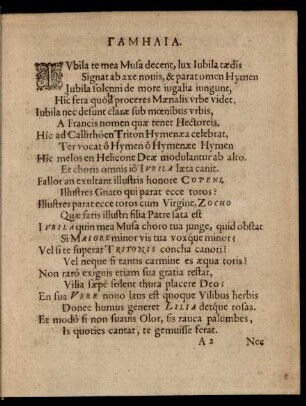 ΓΑΜΗΛΙΑ.
IVbila te mea Musa decent, lux Iubila tædis
Signat ab axe novis, & parat omen Hymen
Iubila solenni de more iugalia iungunt,
Hic sera quod proceres Mænalis urbe videt.
Iubila nec desunt claræ sub mœnibus urbis,
A Francis nomen quæ tenet Hectoreis.
Hic ad Callirhoën Triton Hymenæa celebrat,
Ter vocat ô Hymen ô Hymenæe Hymen
Hic melos en Helicone Deæ modulantur ab alto.
Et choris omnis iô IVBILA læta canit.
Fallor an exultant illustris honore COTENI,
Illustres Gnato qui parat ecce toros?
Illustres parat ecce toros cum Virgine, ZOCHO
Quæ satis illustri filia Patre sata est
IVBILA quin mea Musa choro tua junge, quid obstat
Si MAIORE minor vis tua voxque minor?
Vel si te superat TRITONIS concha canori?
Vel neque si tantis carmine es æqua toris?
Non rarò exiguis etiam sua gratia restat,
Vilia sæpè solent thura placere Deo:
En sua VERE novo laus est quoque Vilibus herbis
Donec humus generet LILIA detque rosas.
Et modò si non suavis Olor, sis rauca palumbes,
Is quoties cantat, te gemuisse ferat.
A 2 Nec